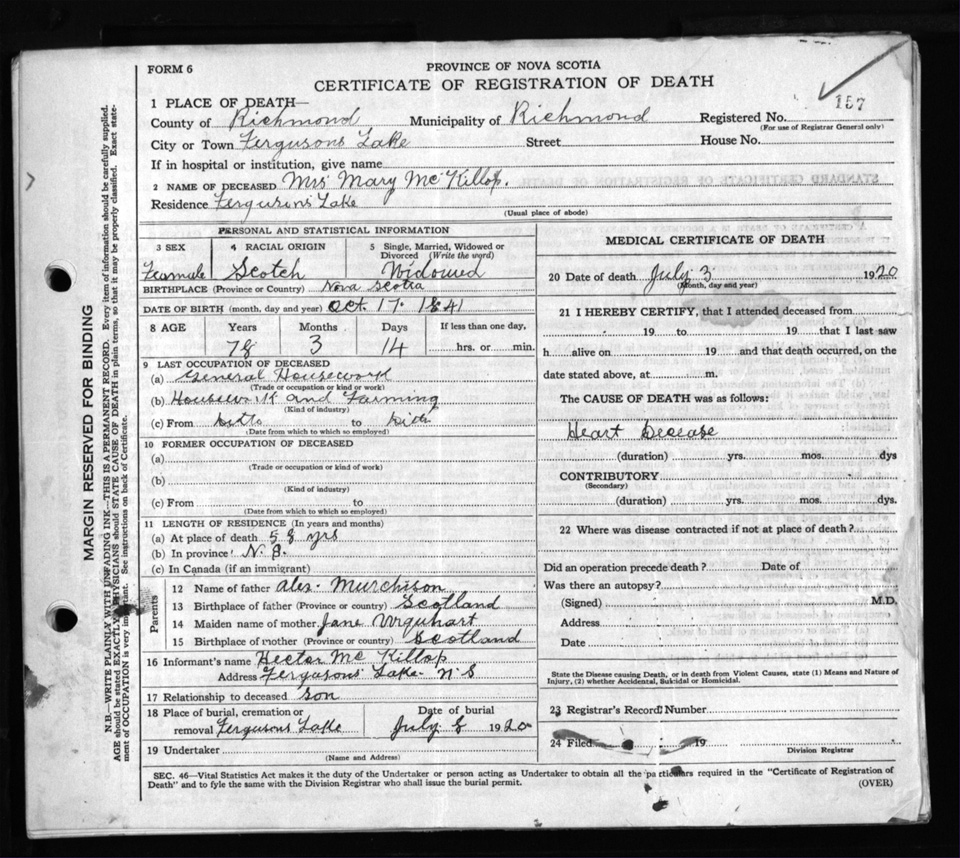 FORM 6
PROVINCE OF NOVA SCOTIA
CERTIFICATE OF REGISTRATION OF DEATH
157
1 PLACE OF DEATH—
County of Richmond Municipality of Richmond Registered No.
(For use of Registrar General only)
City or Town Fergusons Lake Street House No.
If in hospital or institution, give name
2 NAME OF DECEASED Mrs Mary McKillop.
Residence Fergusons Lake
(Usual place of abode)
PERSONAL AND STATISTICAL INFORMATION
3 SEX 4 RACIAL ORIGIN 5 Single, Married, Widowed or Divorced (Write the word)
Feamale Scotch Widowed
BIRTHPLACE (Province or Country) Nova Scotia
DATE OF BIRTH (month, day and year) Oct. 17. 1841
8 AGE Years Months Days If less than one day,
78 3 14 hrs. or min.
9 LAST OCCUPATION OF DECEASED
(a) General Housework
(Trade or occupation or kind or work)
(b) Housework and Farming
(Kind of industry)
(c) From to
(Date from which to which so employed)
10 FORMER OCCUPATION OF DECEASED
(a)
(Trade or occupation or kind of work)
(b)
(Kind of industry)
(c) From to
(Date from which to which so employed)
11 LENGTH OF RESIDENCE (In years and months)
(a) At place of death 58 yrs
(b) In province N.S.
(c) In Canada (if an immigrant)
Parents
12 Name of father Alex. Murchison
13 Birthplace of father (Province or country) Scotland
14 Maiden name of mother Jane Urquhart
15 Birthplace of mother (Province or country) Scotland
16 Informant's name Hector McKillop
Address Fergusons Lake N.S
17 Relationship to deceased son
18 Place of burial, cremation or Date of burial
removal Fergusons Lake July 8 1920
19 Undertaker
(Name and Address)
MEDICAL CERTIFICATE OF DEATH
20 Date of death July 3 1920
(Month, day and year)
21 I HEREBY CERTIFY, that I attended deceased from
19 to 19 that I last saw
h alive on 19 and that death occurred, on the
date stated above, at m.
The CAUSE OF DEATH was as follows:
Heart Decease
(duration) yrs. mos. dys
CONTRIBUTORY
(Secondary)
(duration) yrs. mos. dys.
22 Where was disease contracted if not at place of death?
Did an operation precede death? Date of
Was there an autopsy?
(Signed) M.D.
Address
Date
State the Disease causing Death, or in death from Violent Causes, state (1) Means and Nature of
Injury, (2) whether Accidental, Suicidal or Homicidal.
23 Registrar's Record Number
24 Filed 19
Division Registrar
SEC. 46—Vital Statistics Act makes it the duty of the Undertaker or person acting as Undertaker to obtain all the particulars required in the "Certificate of Registration of
Death" and to fyle the same with the Division Registrar who shall issue the burial permit. (OVER)
MARGIN RESERVED FOR BINDING
N.B.—WRITE PLAINLY WITH UNFADING INK—THIS IS A PERMANENT RECORD. Every item of information should be carefully supplied.
AGE should be stated EXACTLY. PHYSICIANS should STATE CAUSE OF DEATH in plain terms, so that it may be properly classified. Exact state-
ment of OCCUPATION is very important. See instructions on back of Certificate.